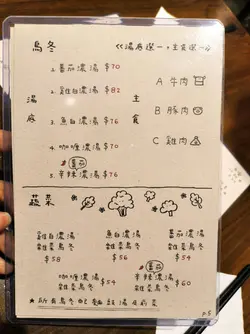 烏冬
<<湯底選一,主食選一>>
湯底
1. 蕃茄濃湯 $70
2. 雞白濃湯 $82
3. 魚白濃湯 $76
4. 咖喱濃湯 $70
#蕃茄
5. 辛辣濃湯 $76
主食
A 牛肉
B 豚肉
C 雞肉
蔬菜
雞白濃湯
雜菜烏冬
$58
魚白濃湯
雜菜烏冬
$56
蕃茄濃湯
雜菜烏冬
$54
咖喱濃湯
雜菜烏冬 $54
#蕃茄
辛辣濃湯
雜菜烏冬 $60
★所有烏冬已包
p.5